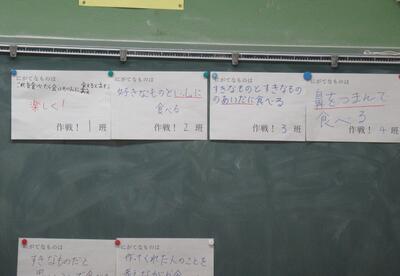 にがてなものは
楽しく！
作戦！ 1 班
にがてなものは
好きなものといっしょに
食べる
作戦！ 2 班
にがてなものは
すきなものとすきなもの
のあいだに食べる
作戦！ 3 班
にがてなものは
鼻をつまんで
食べる
作戦！ 4 班
にがてなものは
すきなものだと
にがてなものは
作ってくれた人のことを